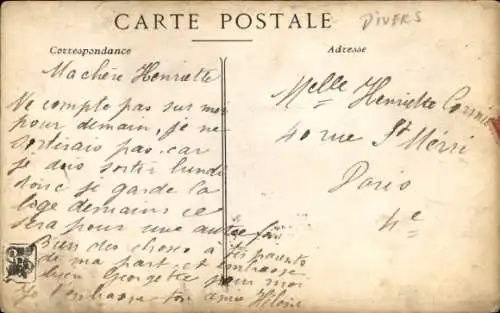 CARTE POSTALE
DIVERS
Correspondance
Adresse
Ma chère Henriette
Ne compte pas sur moi
pour demain, je ne
sortirais pas car
je dois sortir lundi
donc je garde la
loge demain ce
sera pour une autre fois
Bien des choses à tes parents
de ma part et embrasse
bien Georgette pour moi
Je t'embrasse ton amie Héloïse
Melle Henriette
40 rue St Mérri
Paris
4e